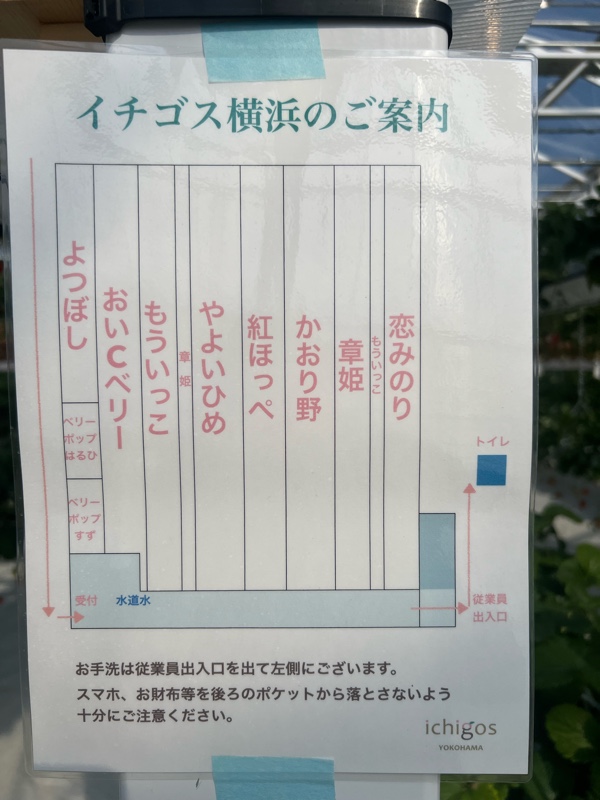 イチゴス横浜のご案内
よつぼし
おいCベリー
もういっこ
章姫
やよいひめ
紅ほっぺ
かおり野
章姫
もういっこ
恋みのり
ベリー
ポップ
はるひ
ベリー
ポップ
すず
トイレ
受付
水道水
従業員
出入口
お手洗は従業員出入口を出て左側にございます。
スマホ、お財布等を後ろのポケットから落とさないよう
十分にご注意ください。
ichigos
YOKOHAMA